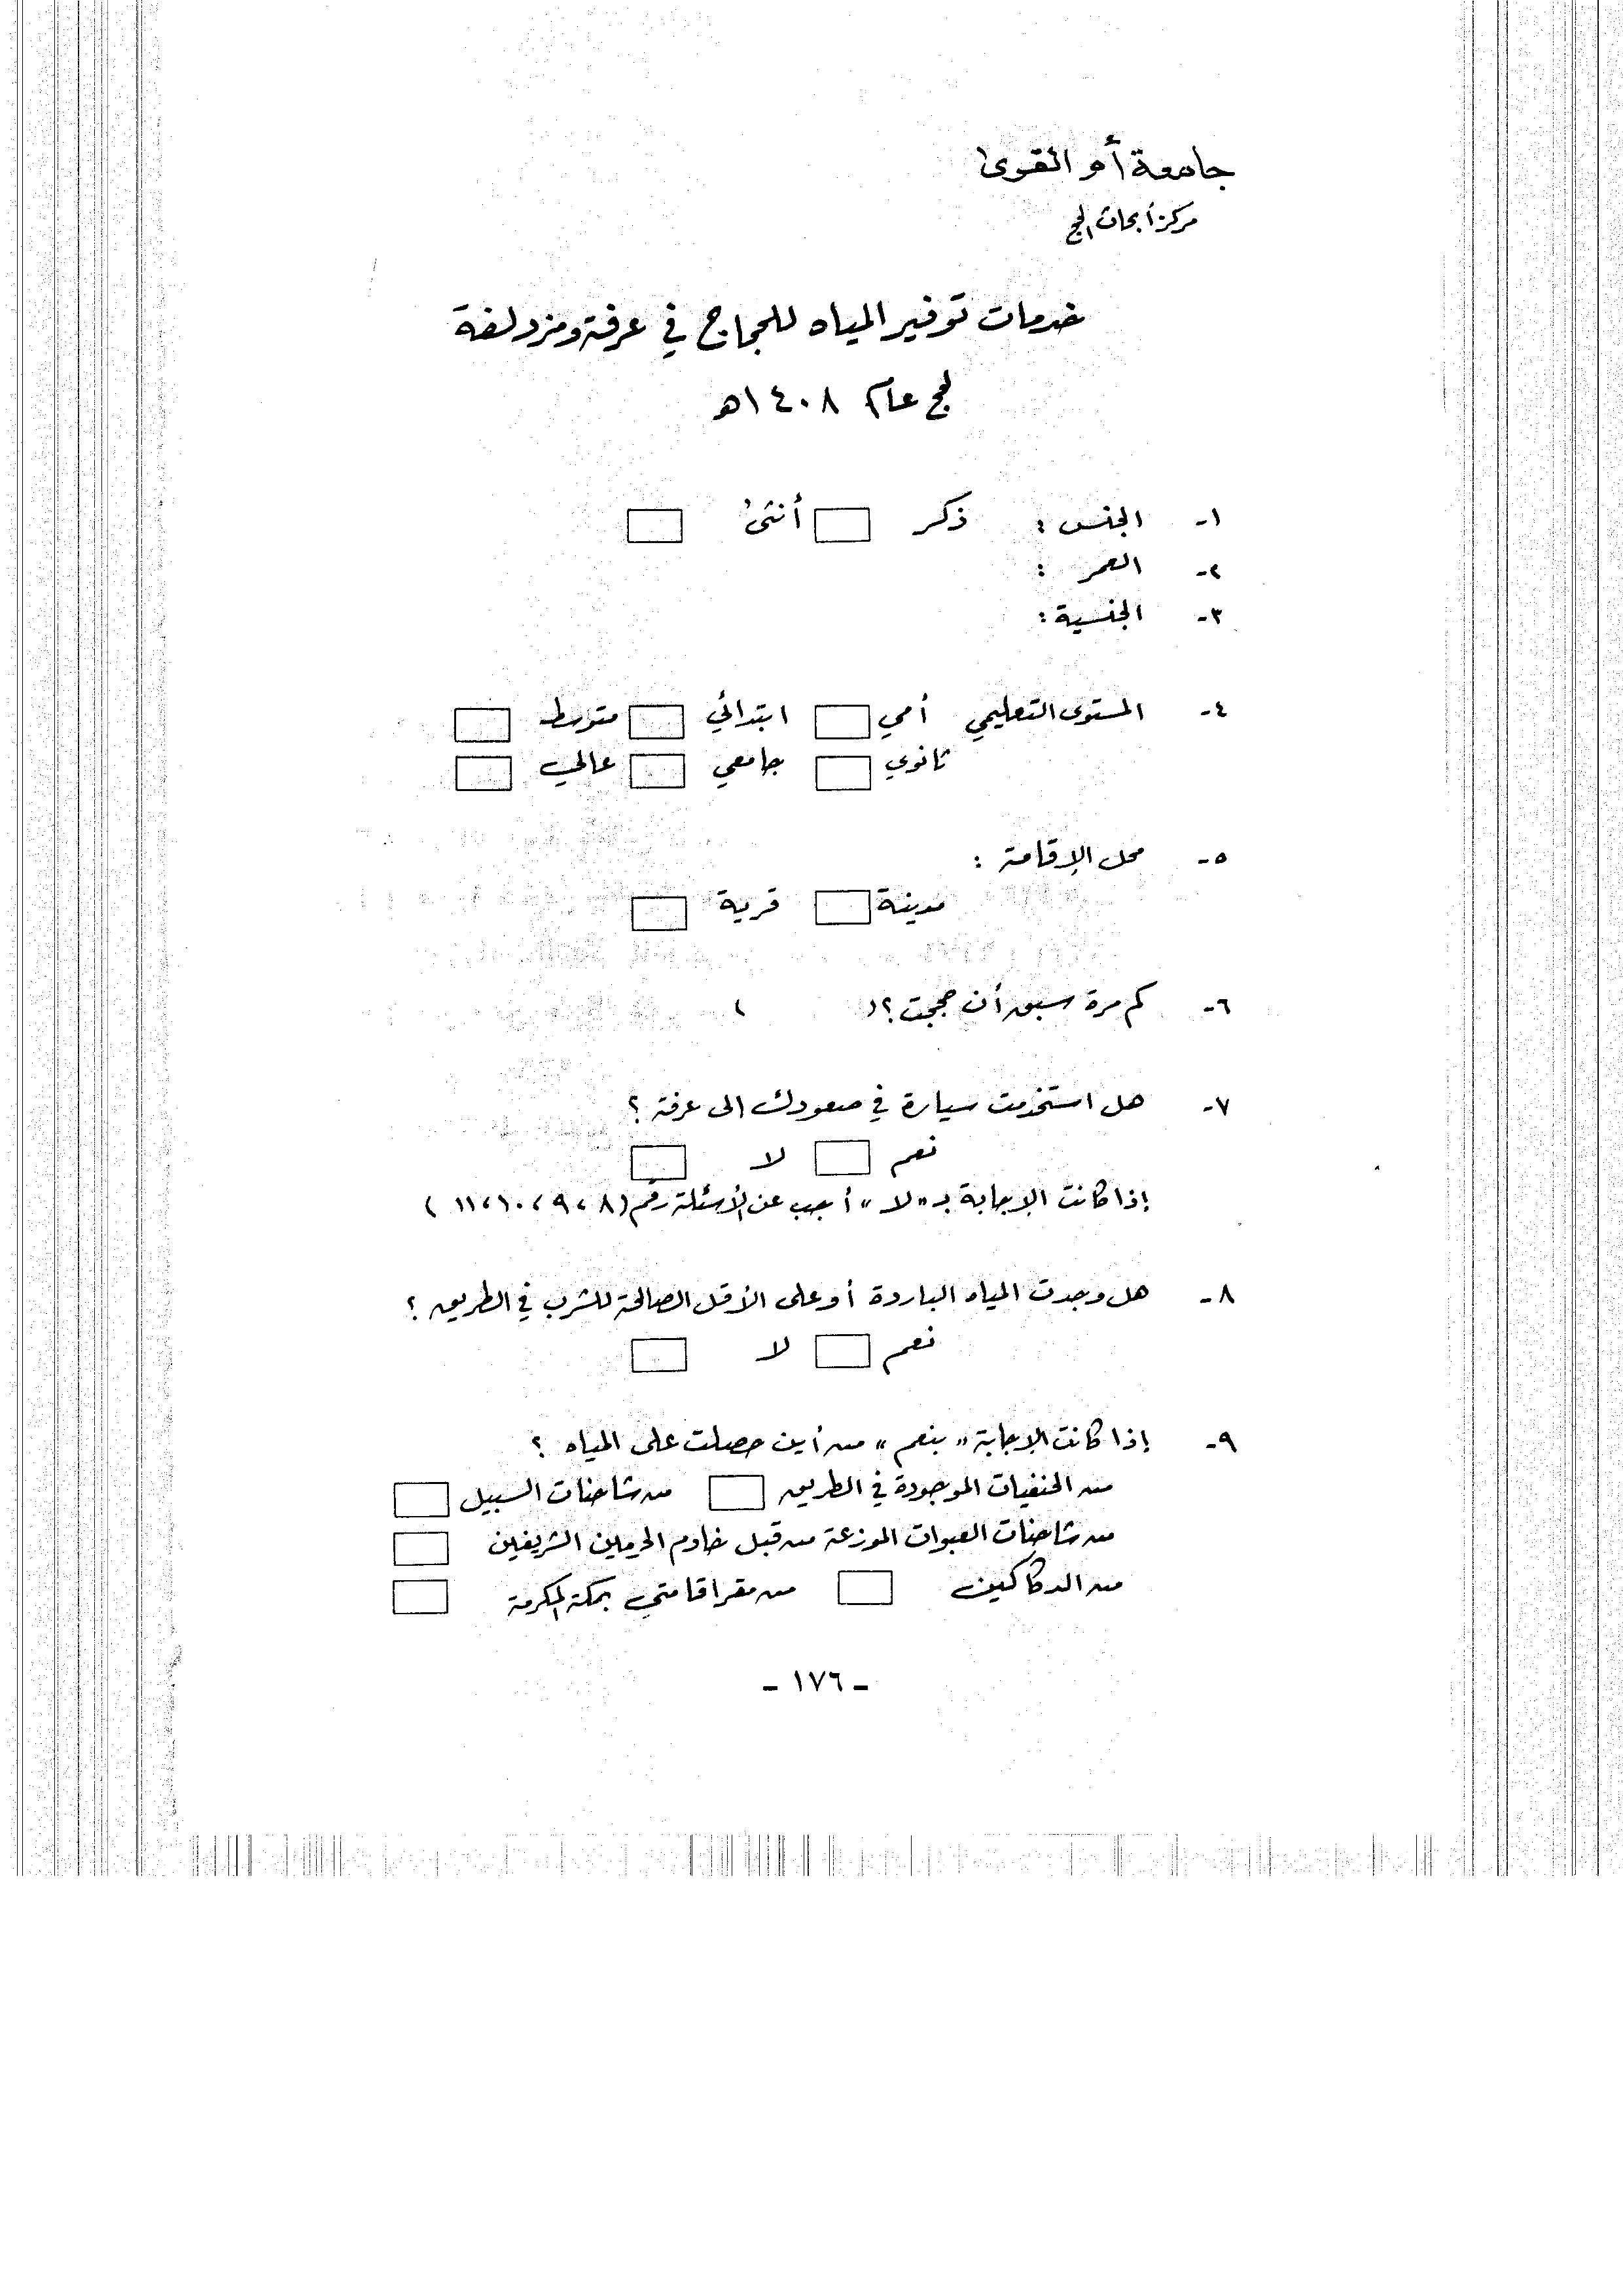 جامعة أم القرى
مركز أبحاث الحج
خدمات توفير المياه للحجاج في عرفة ومزدلفة
لحج عام ١٤٠٨هـ
١- الجنس : ذكر أنثى
٢- العمر :
٣- الجنسية :
٤- المستوى التعليمي أمي ابتدائي متوسط
ثانوي جامعي عالي
٥- محل الإقامة :
مدينة قرية
٦- كم مرة سبق أن حججت ؟ ( )
٧- هل استخدمت سيارة في صعودك الى عرفة ؟
نعم لا
إذا كانت الإجابة بـ «لا» أجب عن الأسئلة رقم (٨ ، ٩ ، ١٠ ، ١١ )
٨- هل وجدت المياه الباردة أو على الأقل الصالحة للشرب في الطريق ؟
نعم لا
٩- إذا كانت الإجابة « بنعم » من أين حصلت على المياه ؟
من الحنفيات الموجودة في الطريق من شاحنات السبيل
من شاحنات العبوات الموزعة من قبل خادم الحرمين الشريفين
من الدكاكين من مقر اقامتي بمكة المكرمة
- ١٧٦ -